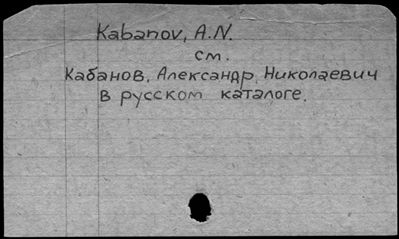 Kabanov, A.N.
см.
Кабанов, Александр Николаевич
в русском каталоге.